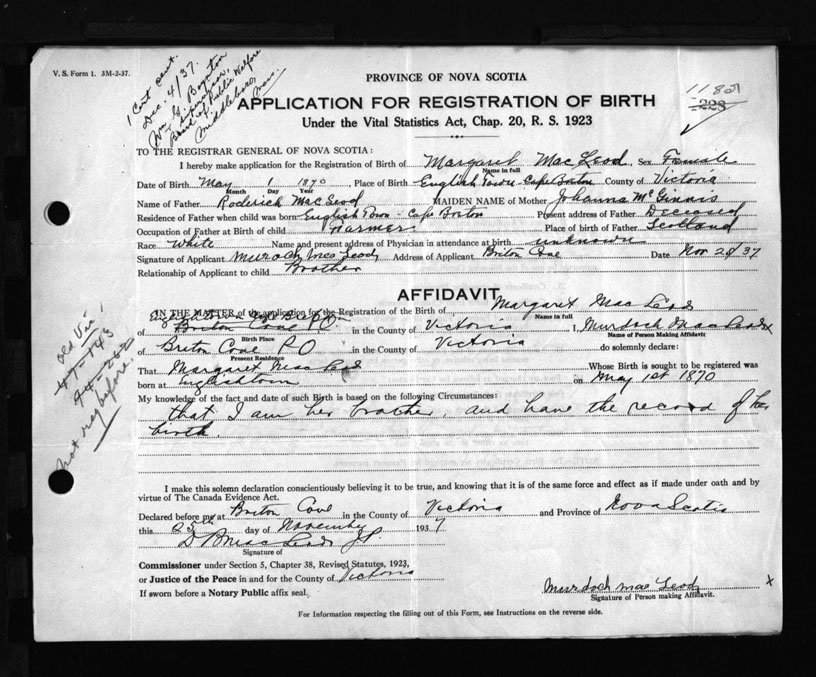 V. S. Form 1. 3M-2-37.
1 Cert sent.
Dec. 4/37.
Board of Public Welfare
Middleboro, Mass.
PROVINCE OF NOVA SCOTIA
APPLICATION FOR REGISTRATION OF BIRTH
Under the Vital Statistics Act, Chap. 20, R. S. 1923
223
TO THE REGISTRAR GENERAL OF NOVA SCOTIA:
I hereby make application for the Registration of Birth of Margaret MacLeod, Sex Female
Name in full
Date of Birth May 1 1870, Place of Birth English Town - Cape Breton County of Victoria
Month Day Year
Name of Father Roderick MacLeod MAIDEN NAME of Mother Johanna McGinnis
Residence of Father when child was born English Town - Cape Breton Present address of Father Deceased
Occupation of Father at Birth of child Farmer Place of birth of Father Scotland
Race White Name and present address of Physician in attendance at birth unknown
Signature of Applicant Murdoch MacLeod Address of Applicant Briton Cove Date Nov 24 37
Relationship of Applicant to child Brother
AFFIDAVIT
IN THE MATTER of the application for the Registration of the Birth of Margaret MacLeod
Name in full
of Briton Cove P.O. in the County of Victoria I, Murdoch MacLeod x
Birth Place Name of Person Making Affidavit
of Briton Cove P O in the County of Victoria do solemnly declare:
Present Residence
That Margaret MacLeod Whose Birth is sought to be registered was
born at Englishtown on May 1st 1870
My knowledge of the fact and date of such Birth is based on the following Circumstances:
that I am her brother, and have the record of her
birth.
Old Vic
94-262
Not reg before.
I make this solemn declaration conscientiously believing it to be true, and knowing that it is of the same force and effect as if made under oath and by
virtue of The Canada Evidence Act.
Declared before me at Briton Cove in the County of Victoria and Province of Nova Scotia
this 25th day of November 1937
MacLeod J.P.
Signature of
Commissioner under Section 5, Chapter 38, Revised Statutes, 1923,
or Justice of the Peace in and for the County of Victoria
If sworn before a Notary Public affix seal.
Murdoch MacLeod x
Signature of Person making Affidavit.
For Information respecting the filling out of this Form, see Instructions on the reverse side.